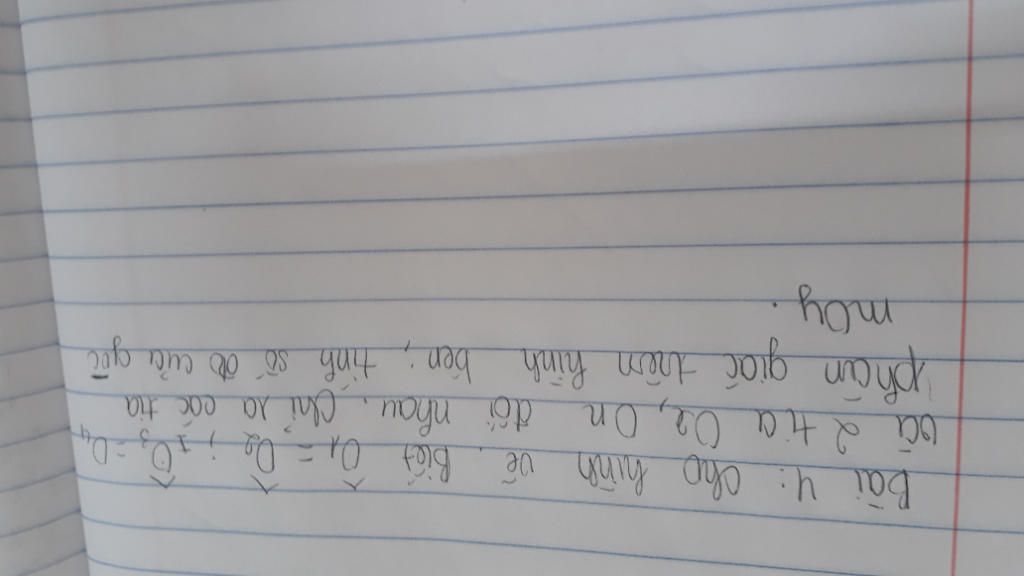 Bài 4: cho hình vẽ. Biết Ô1 = Ô2 ; Ô3 = Ô4
và 2 tia Oz, On đối nhau. Chỉ ra các tia
phân giác trên hình bên; tính số đo của góc
mOy.